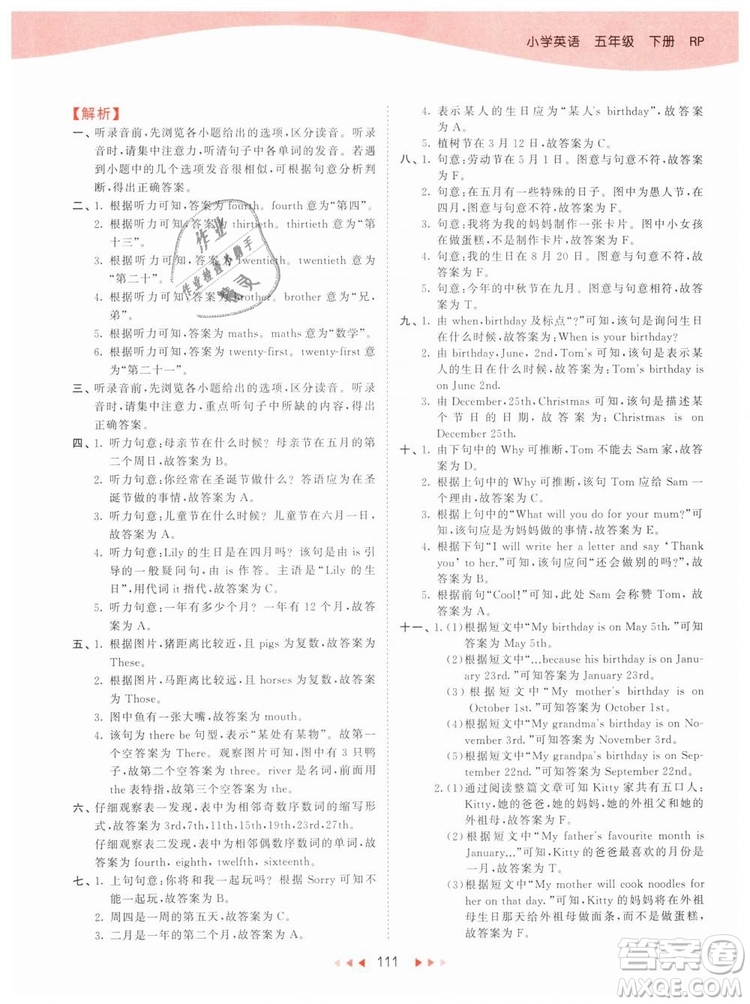 小学英语 五年级 下册 RP
【解析】
一、听录音前,先浏览各小题给出的选项,区分读音。听录
音时,请集中注意力,听清句子中各单词的发音。若遇
到小题中的几个选项发音很相似,可根据句意分析判
断,得出正确答案。
二、1. 根据听力可知,答案为 fourth。fourth 意为“第四”。
2. 根据听力可知,答案为 thirtieth。thirtieth 意为“第
三十”。
3. 根据听力可知,答案为 twentieth。twentieth 意为
“第二十”。
4. 根据听力可知,答案为 brother。brother 意为“兄,
弟”。
5. 根据听力可知,答案为 maths。maths 意为“数学”。
6. 根据听力可知,答案为 twenty-first。twenty-first 意
为“第二十一”。
三、听录音前,先浏览各小题给出的选项,区分读音。听录
音时,请集中注意力,重点听句子中所缺的内容,得出
正确答案。
四、1. 听力句意:母亲节在什么时候? 母亲节在五月的第
二个周日,故答案为 B。
2. 听力句意:你经常在圣诞节做什么? 答语应为在圣
诞节做的事情,故答案为 A。
3. 听力句意:儿童节在什么时候? 儿童节在六月一日,
故答案为 A。
4. 听力句意:Lily 的生日是在四月吗? 该句是由 is 引
导的一般疑问句,由 is 作答。主语是“Lily 的生
日”,用代词 it 指代,故答案为 C。
5. 听力句意:一年有多少个月? 一年有 12 个月,故答
案为 A。
五、1. 根据图片,猪距离比较近,且 pigs 为复数,故答案为
These。
2. 根据图片,马距离比较远,且 horses 为复数,故答案
为 Those。
3. 图中鱼有一张大嘴,故答案为 mouth。
4. 该句为 there be 句型,表示“某处有某物”。故第一
个空答案为 There。观察图片可知,图中有 3 只鸭
子,故第二个空答案为 three。river 是特指,前面应
用 the 表特指,故第三个空答案为 the。
六、仔细观察表一发现,表中为相邻奇数序数词的缩写形
式,故答案为 3rd,7th,9th,11th,15th,19th,23rd。
仔细观察表二发现,表中为相邻偶数序数词的单词,故
答案为 fourth, eighth, twelfth, sixteenth。
七、1. 上句句意:你将和我一起玩吗? 根据 Sorry 可知不
能一起玩,故答案为 B。
2. 周四是一周的第五天,故答案为 C。
3. 二月是一年的第二个月,故答案为 A。
4. 表示某人的生日应为“某人's birthday”,故答案
为 A。
5. 植树节在 3 月 12 日,故答案为 C。
八、1. 句意:劳动节在 5 月 1 日。图意与句意不符,故答案
为 F。
2. 句意:在五月有一些特殊的日子。图意为愚人节,在
四月,图意与句意不符,故答案为 F。
3. 句意:我将为我的妈妈制作一张卡片。图中小女孩
在做蛋糕,不是制作卡片,故答案为 F。
4. 句意:我的生日在 9 月 9 日。图意与句意相符,故答
案为 T。
5. 句意:今年的中秋节在九月。图意与句意相符,故答
案为 T。
九、1. 由 when,birthday 及标点“?”可知,该句是询问生日
在什么时候,故答案为:When is your birthday?
2. 由 birthday,June, 2nd,Tom's 可知,该句是表示某
人的生日在什么时候,故答案为:Tom's birthday is
on June 2nd.
3. 由 December,25th,Christmas 可知,该句是描述某
个节日的日期,故答案为:Christmas is on
December 25th.
十、1. 由下句中的 Why 可推断,Tom 不能去 Sam 家,故答
案为 D。
2. 根据上句中的 Why 可推断,该句 Tom 应给出 Sam
一个理由,故答案为 C。
3. 根据上句中的“What will you do for your mum?”可
知,该句应是为妈妈做的事情,故答案为 E。
4. 根据下句“I will write her a letter and say ‘Thank
you’ to her.”可知,该句应问“还会做别的吗”,故答
案为 B。
5. 根据前句“Cool!”可知,此处 Sam 应会称赞 Tom,故
答案为 A。
十一、1.(1)根据短文中“My birthday is on May 5th.”可知
答案为 May 5th。
(2)根据短文中“…because his birthday is on Janu-
ary 23rd.”可知答案为 January 23rd。
(3)根据短文中“My mother's birthday is on
October 1st.”可知答案为 October 1st。
(4)根据短文中“My grandma's birthday is on No-
vember 22nd.”可知答案为 November 22nd。
(5)根据短文中“My grandpa's birthday is on Sep-
tember 22nd.”可知答案为 September 22nd。
2.(1)通过阅读整篇文章可知 Kitty 家共有五口人:
Kitty,她的爸爸,她的妈妈,她的外祖父和她的
外祖母,故答案为 F。
(2)根据短文中“My father's favourite month is
January.”可知,Kitty 的爸爸最喜欢的月份是
一月,故答案为 F。
(3)根据短文中“My mother will cook noodles for
her on that day.”可知,Kitty 的妈妈将在外祖
母生日那天给外祖母做面条,而不是做蛋糕,
故答案为 F。
111
作业
作业检查小助手
答案圈
MXQE.COM